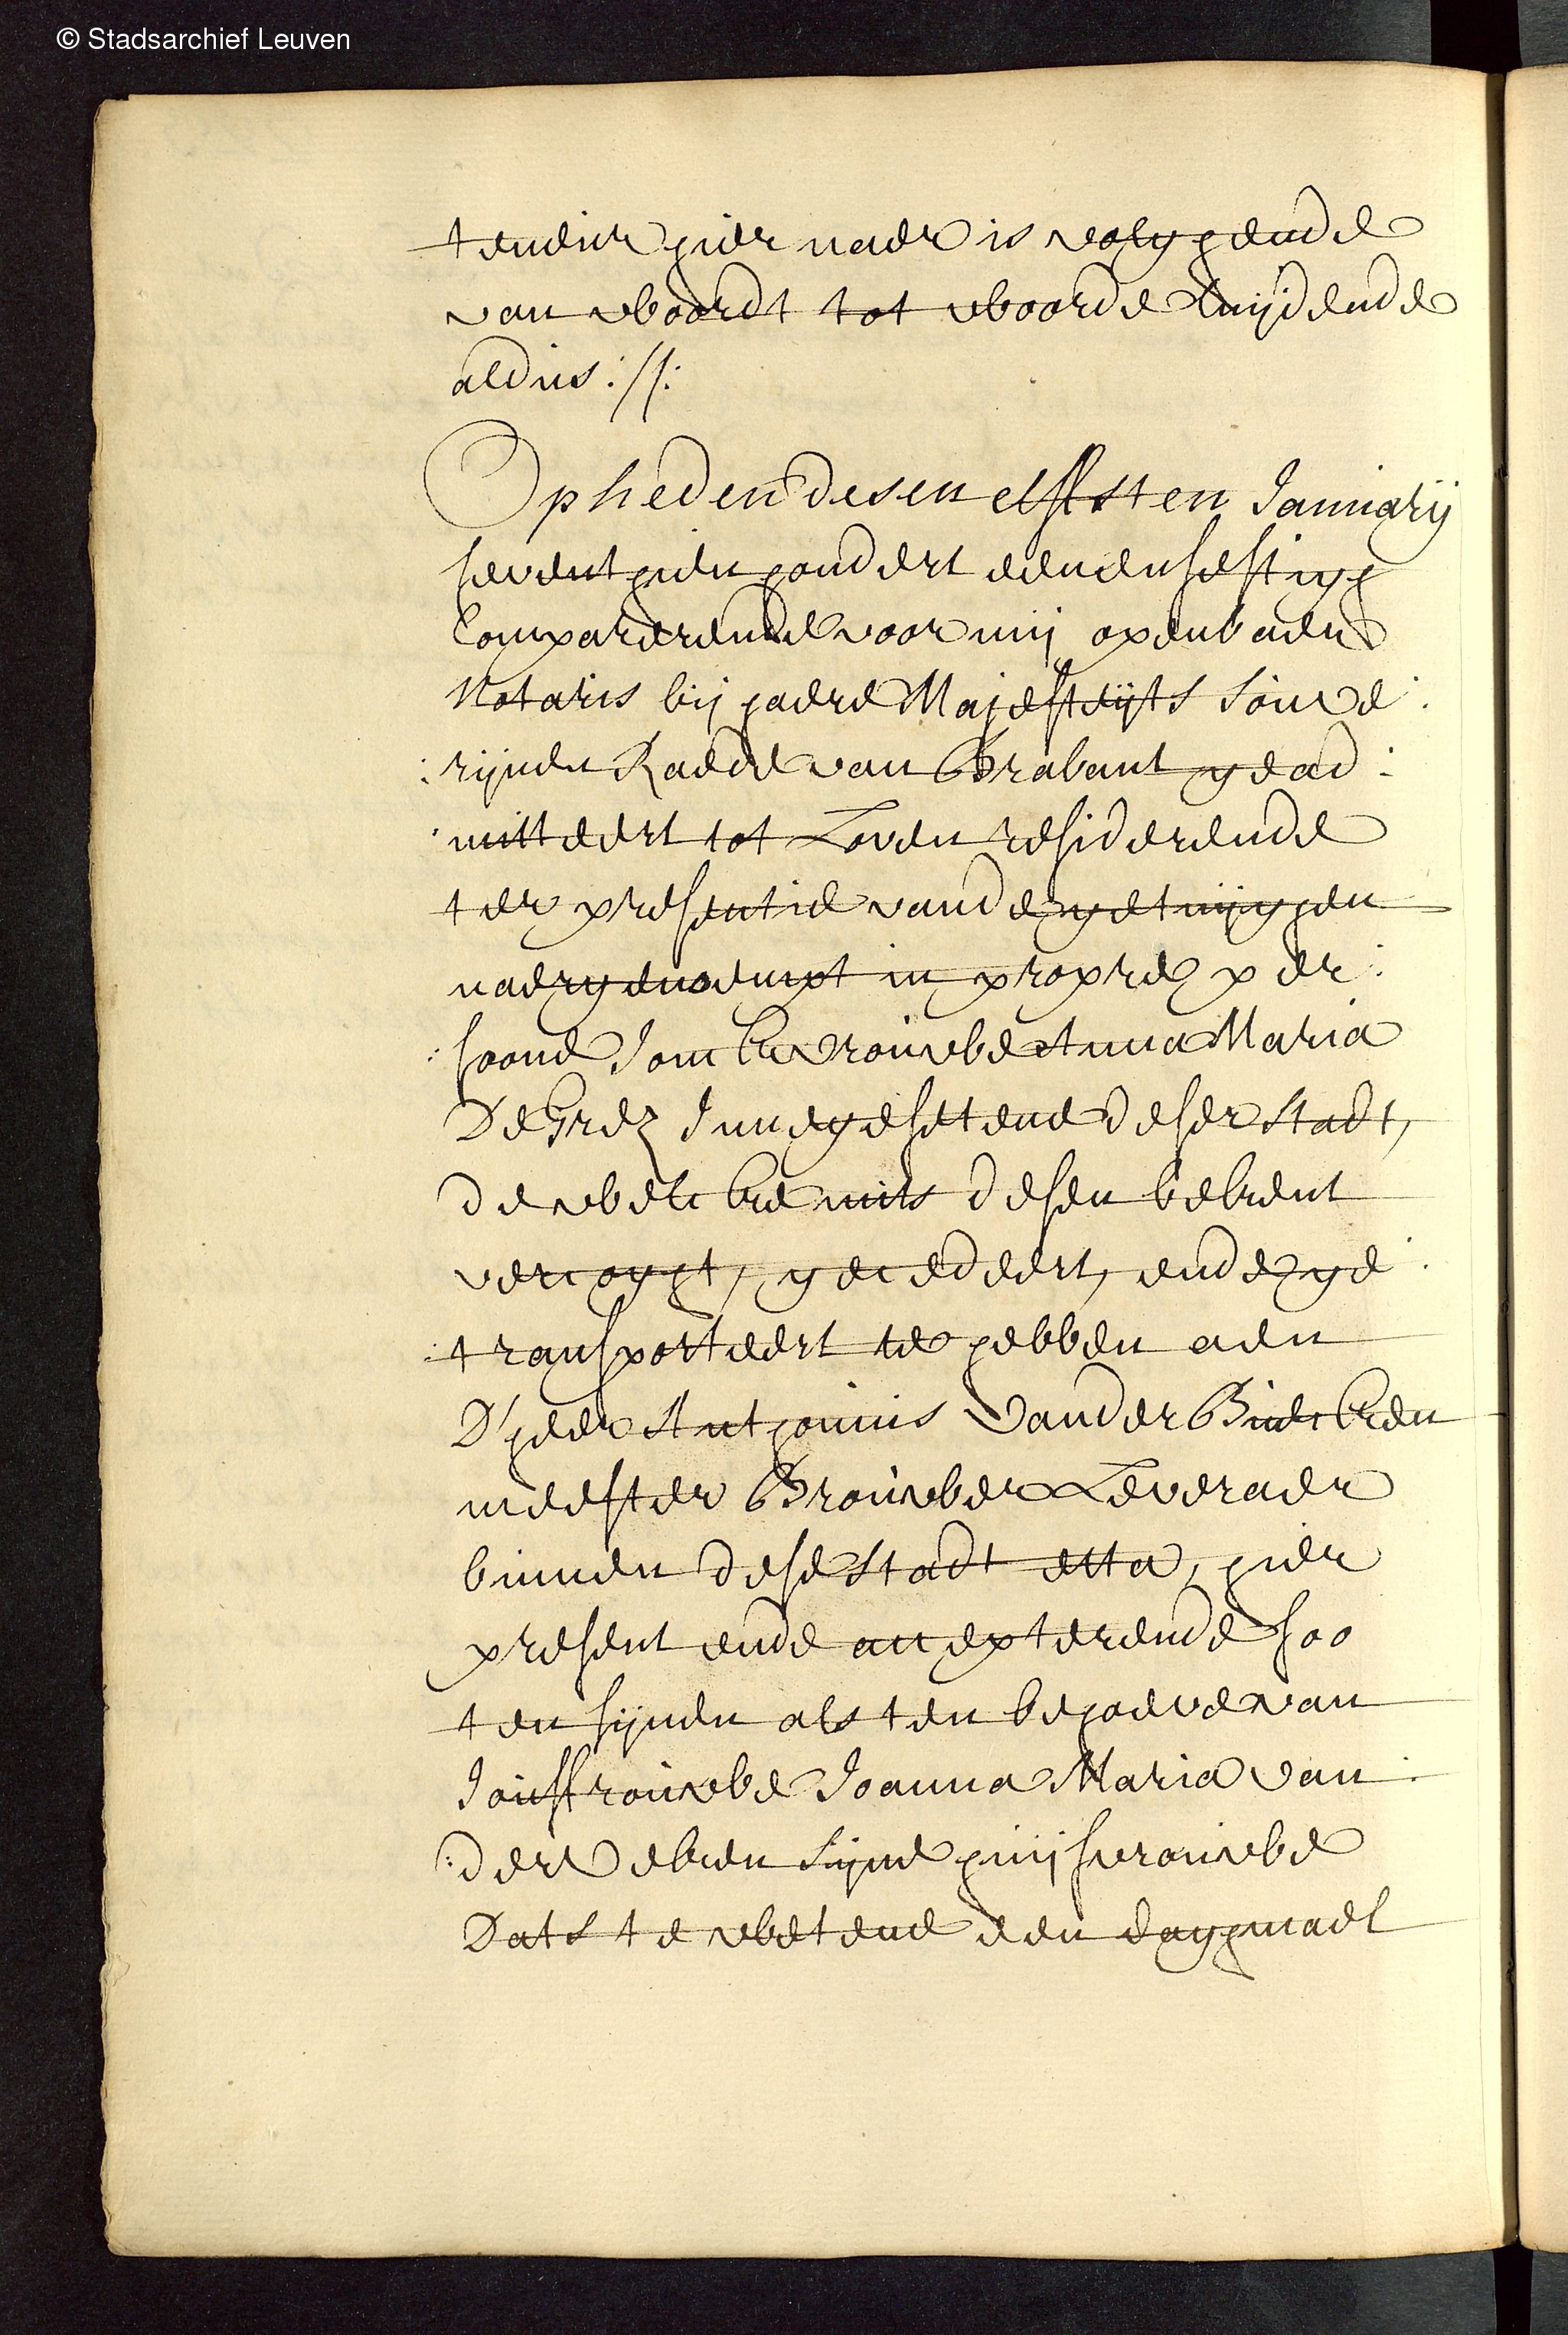 © Stadsarchief Leuven
teneur hier naer is volghende
van woordt tot woorde luijdende
aldus ://:
Op heden desen elfsten Januarij
seventhien hondert eenensestigh
Comparerende voor mij openbaer
Notaris bij haere Majesteijts souve:
:rijnen Raede van Brabant gead:
:mitteert tot Loven residerende
ter presentie vande getuijghen
naergenoempt in propre per:
:soone Jonckvrouwe Anna Maria
De Grez Innegesetene deser stadt,
de welcke mits desen bekent
vercoght, gecedeert, ende ge:
:transporteert te hebben aen
D'heer Anthonius Vander Buecken
meester Brouwer Leveraer
binnen dese stadt etta, hier
present ende accepterende soo
ten sijnen als ten behoeve van
Jouffrouwe Joanna Maria van:
:der Veken sijne huijsvrouwe
Dats te wetene een daghmael